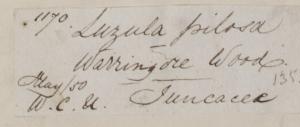 1170.
Luzula pilosa
Warringore Wood.
135.
May/50
W. C. U. Juncaceæ